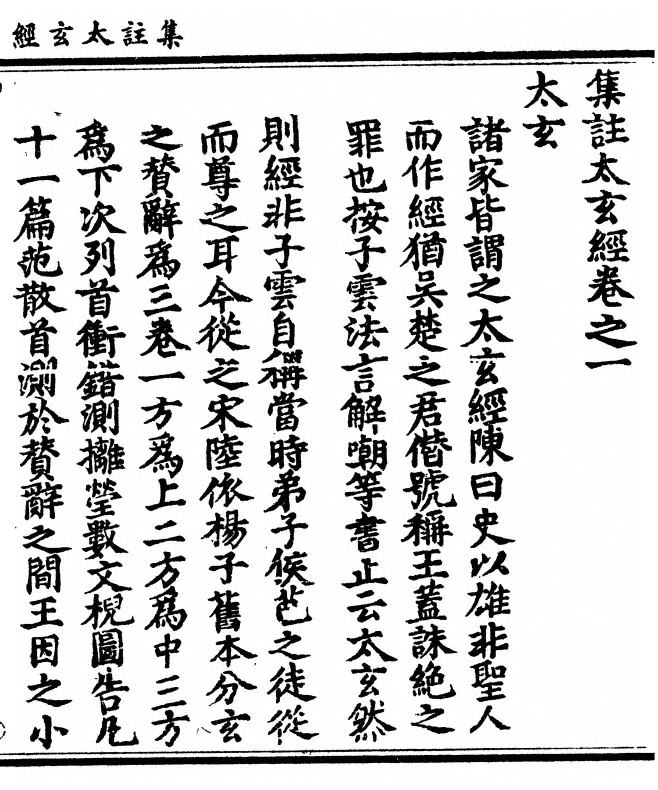 集註太玄經
集註太玄經卷之一
太玄
諸家皆謂之太玄經陳曰史以雄非聖人
而作經猶吳楚之君僭號稱王蓋誅絶之
罪也按子雲法言解嘲等書止云太玄然
則經非子雲自稱當時弟子侯芭之徒從
而尊之耳今從之宋陸依楊子舊本分玄
之贊辭爲三卷一方爲上二方爲中三方
爲下次列首衝錯測攡瑩數文棿圖告凡
十一篇范散首測於贊辭之間王因之小